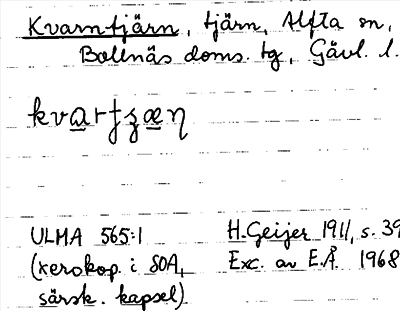 Kvarntjärn, tjärn, Alfta sn,
Bollnäs doms. tg, Gävl. l.
ULMA 565:1
H. Geijer 1911, s. 39
(xerokop. i SOA,
Exc. av E.Å. 1968
särsk. kapsel)